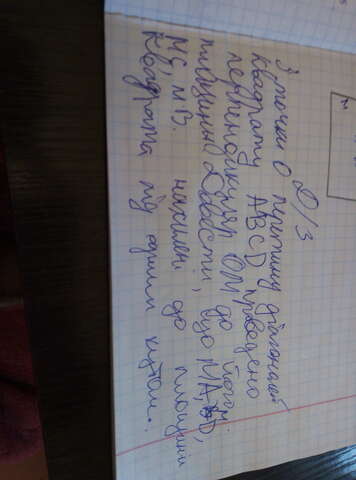 D/з
З точки О перетину діагоналей
квадрату ABCD проведено
перпендикуляр OM до його
площини. Довести, що MA, MD,
MC, MB. нахилені до площини
квадрата під одним кутом.